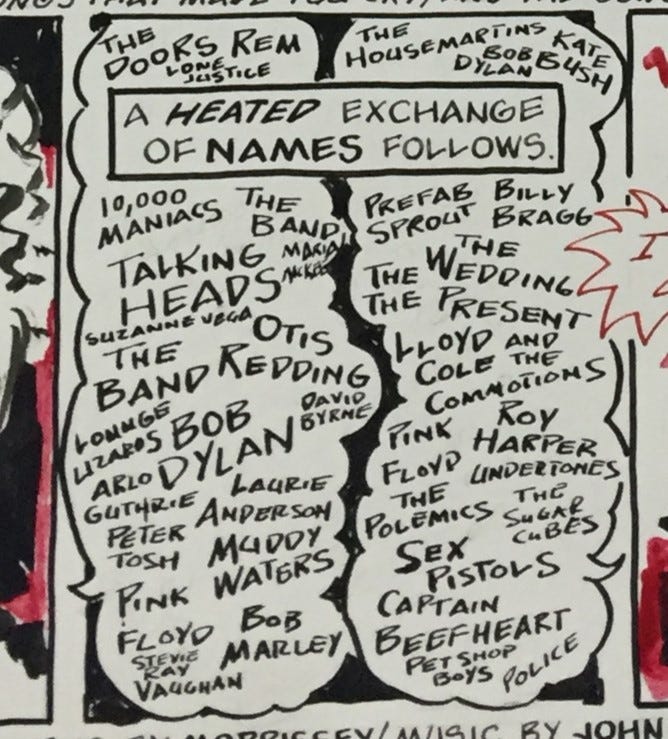 THAT MADE YOU CRY, AND THE
THE
DOORS REM
LONE
JUSTICE
THE
HOUSEMARTINS KATE
BOB BUSH
DYLAN
A HEATED EXCHANGE
OF NAMES FOLLOWS.
10,000
MANIACS THE
BAND
TALKING MARIA
HEADS MCKEE
SUZANNE VEGA
THE OTIS
BAND REDDING
LOUNGE DAVID
LIZARDS BOB BYRNE
ARLO DYLAN
GUTHRIE LAURIE
PETER ANDERSON
TOSH MUDDY
PINK WATERS
FLOYD BOB
STEVIE MARLEY
RAY
VAUGHAN
PREFAB BILLY
SPROUT BRAGG
THE
THE WEDDING
THE PRESENT
LLOYD AND
COLE THE
COMMOTIONS
PINK ROY
HARPER
FLOYD UNDERTONES
THE THE
POLEMICS SUGAR
CUBES
SEX
PISTOLS
CAPTAIN
BEEFHEART
PET SHOP
BOYS POLICE
I
BY MORRISSEY/MUSIC BY JOHN